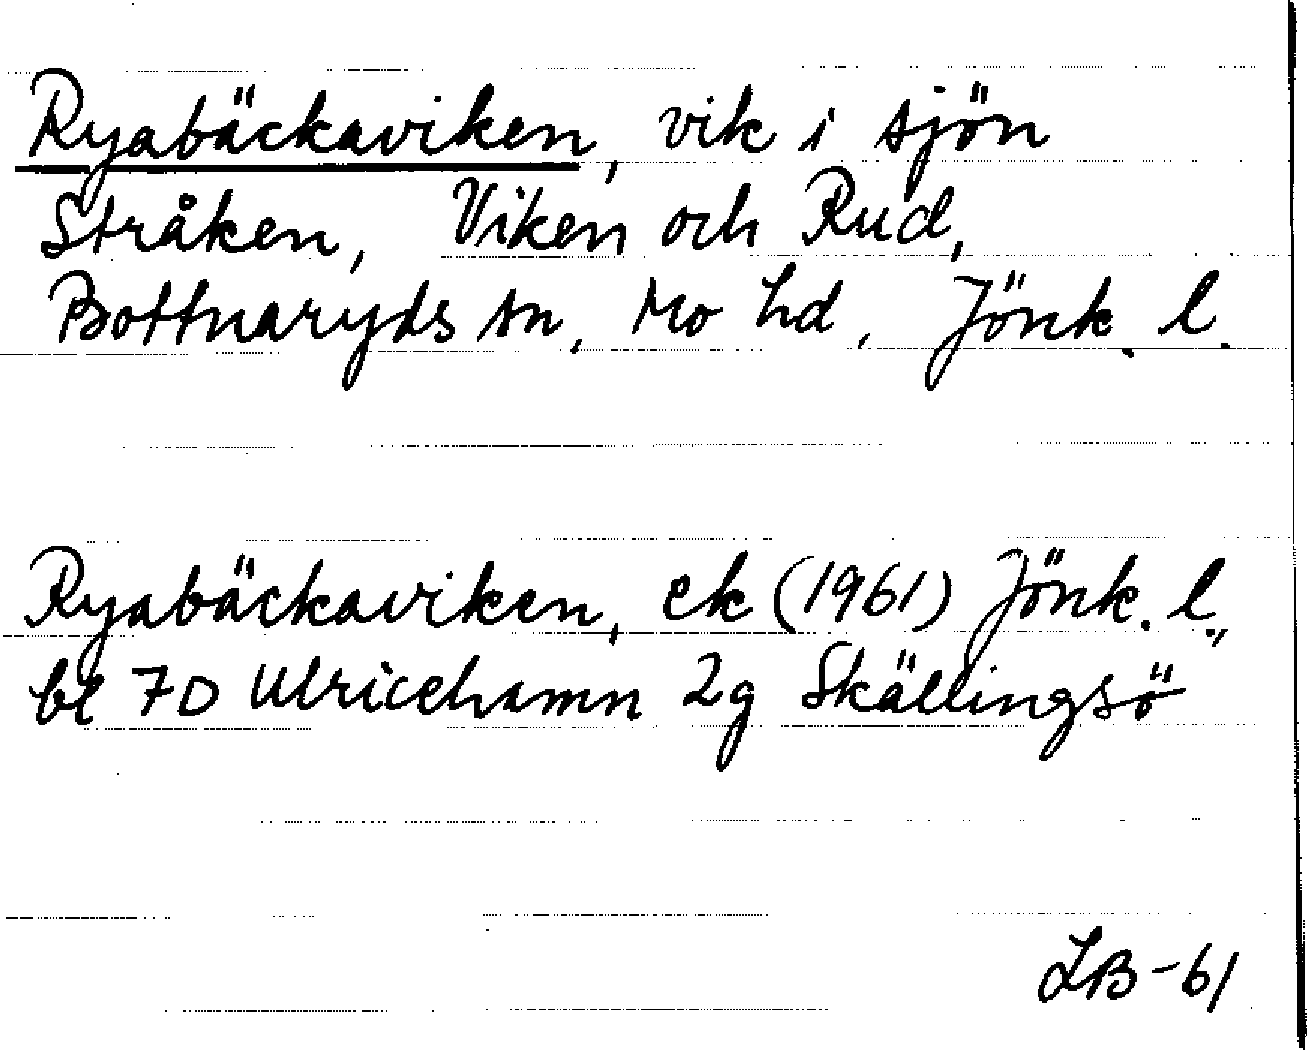 Ryabäckaviken, vik i sjön
Stråken, Viken och Rud,
Bottnaryds sn, Mo hd, Jönk. l.
Ryabäckaviken, ek (1961) Jönk. l.,
bl 7D Ulricehamn 2g Skällingsö
LB-61